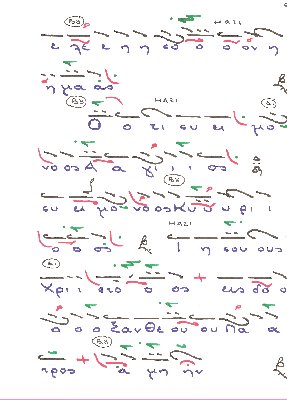 ε λε ε η η σο ο ο ον η
η μα ας
Ο ο τι συ ει μο
νο ος Α α γι ι ος
συ ει μο νο ος Κυ υ υ ρι ι
ο ο ος Ι η σου ους
Χρι ι στο ο ος + εις δο ο
ο ο ο ξαν Θε ου ου Πα α
τρος + α μη ην